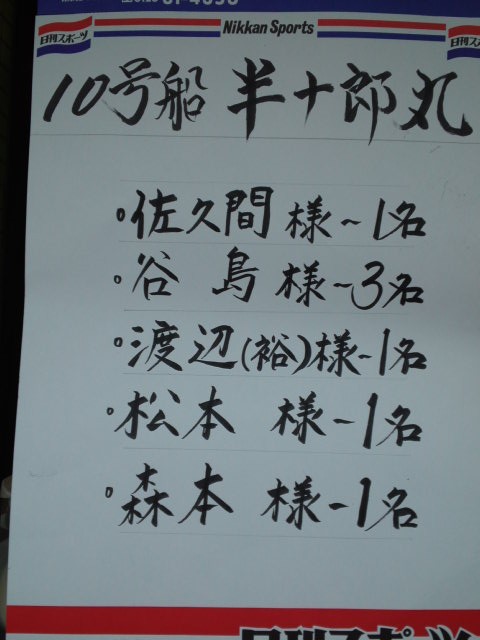 日刊スポーツ Nikkan Sports 日刊ス
10号船 半十郎丸
佐久間 様~1名
谷島 様~3名
渡辺(裕)様-1名
松本 様-1名
森本 様-1名
日刊スポーツ